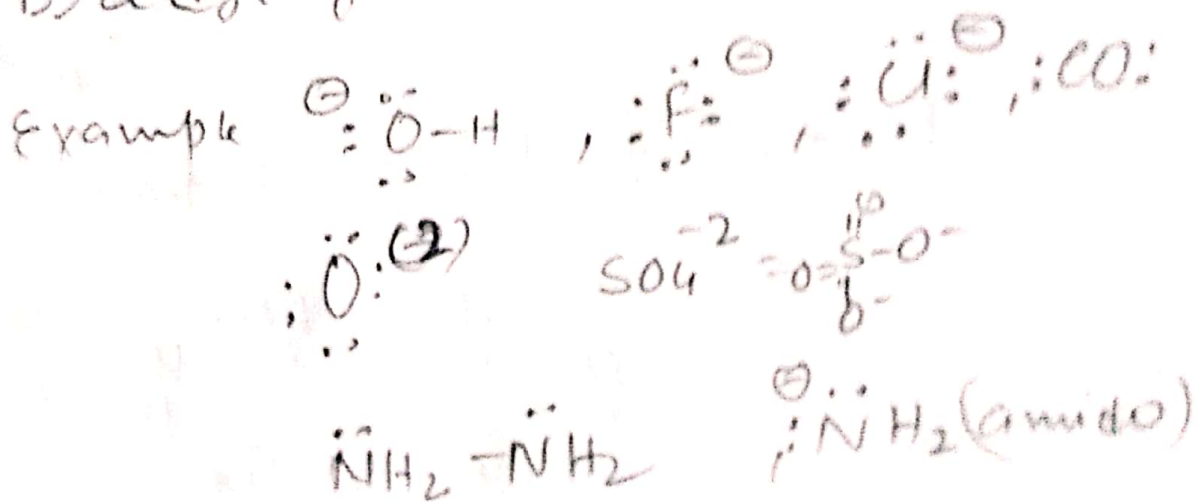 Example ⊖:Ö-H, :F̈:⊖, :C̈l:⊖, :CO:
:Ö:(-2) SO4-2 =O=S-O-
O
O-
N̈H2-N̈H2 ⊖:N̈H2(amido)